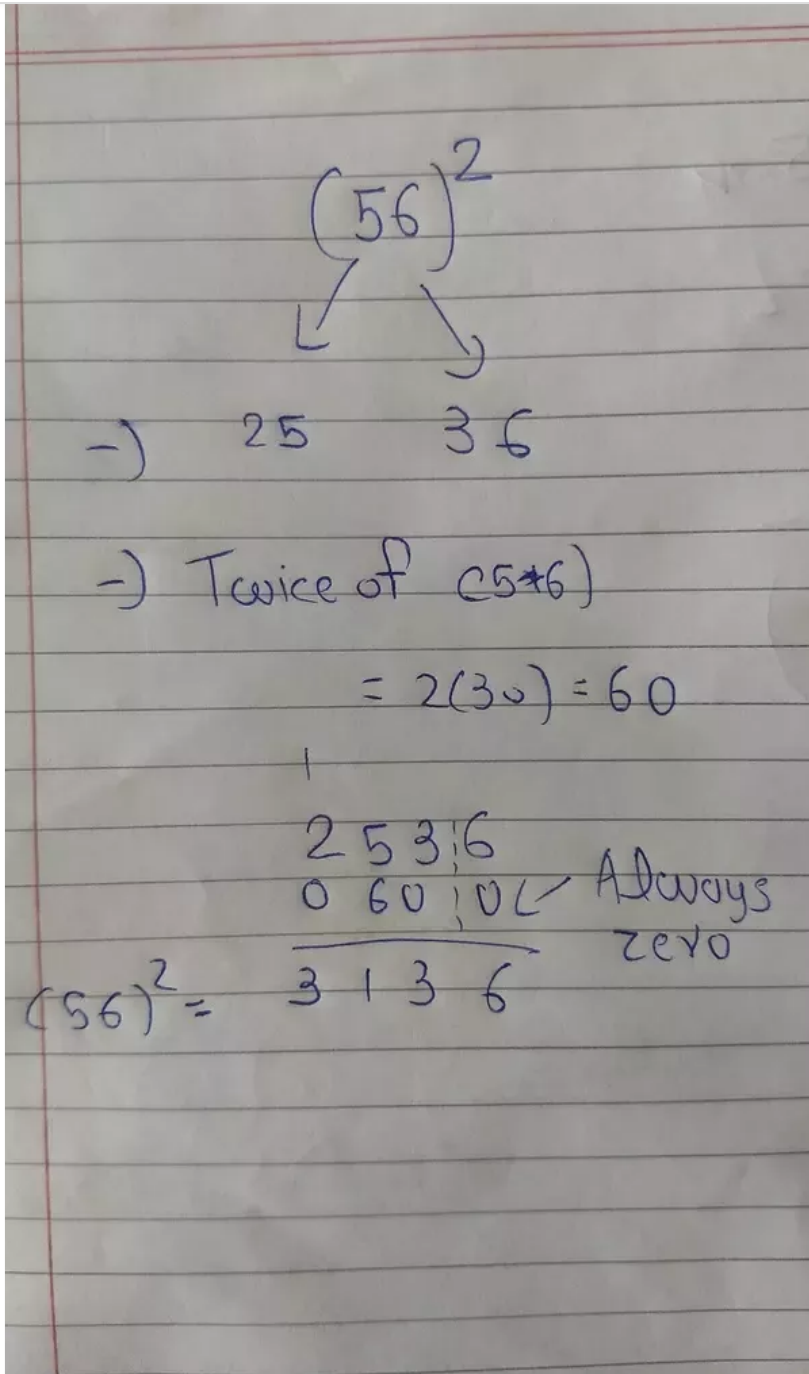 (56)²
-) 25 36
-) Twice of (5*6)
= 2(30) = 60
1
2 5 3 6
0 60 0 ← Always
zero
(56)² = 3 1 3 6